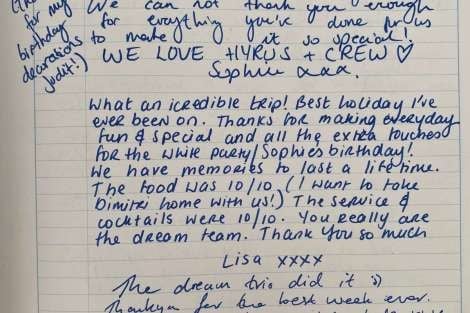 for my
birthday
decorations
Judit!)
We can not thank you enough
for everything you've done for us
to make it so special!
WE LOVE HYRUS + CREW ♡
Sophie xxx.
What an icredible trip! Best holiday I've
ever been on. Thanks for making everyday
fun & special and all the extra touches
for the white party/Sophie's birthday!
We have memories to last a lifetime.
The food was 10/10 (I want to take
Dimitri home with us!) The service &
cocktails were 10/10. You really are
the dream team. Thank you so much
Lisa xxxx
The dream trio did it :)
Thankyou for the best week ever.